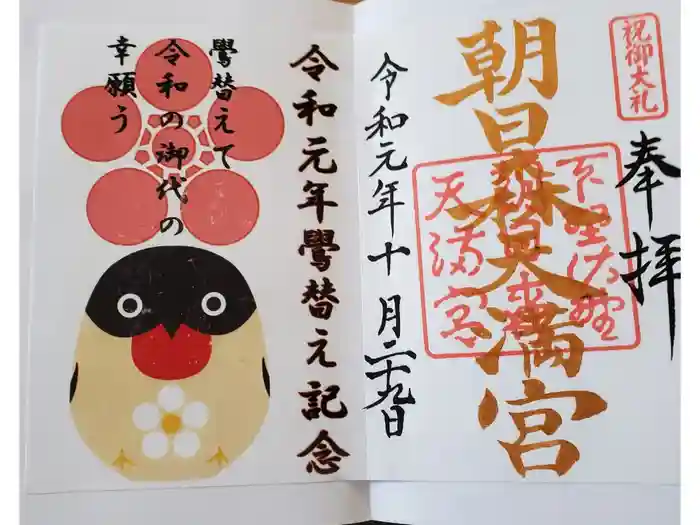 祝御大礼
奉拝
朝日森天満宮
下野佐野
朝日森
天満宮
令和元年十月二十九日
令和元年鷽替え記念
鷽替えて
令和の御代の
幸願う